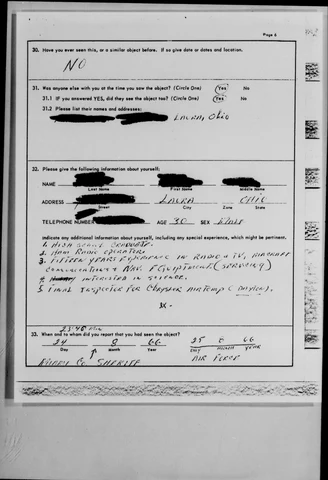 Page 6
30. Have you ever seen this, or a similar object before. If so give date or dates and location.
NO
31. Was anyone else with you at the time you saw the object? (Circle One) Yes No
31.1 If you answered YES, did they see the object too? (Circle One) Yes No
31.2 Please list their names and addresses:
LAURA, Ohio
32. Please give the following information about yourself:
NAME
Last Name First Name Middle Name
ADDRESS LAURA OHIO
Street City Zone State
TELEPHONE NUMBER AGE 30 SEX MALE
Indicate any additional information about yourself, including any special experience, which might be pertinent.
1. HIGH SCHOOL GRADUATE.
2. HAM RADIO OPERATOR
3. FIFTEEN YEARS EXPERIENCE IN RADIO & TV, AIRCRAFT
COMMUNICATIONS & NAV. EQUIPTMENT (SERVICING)
INTERESTED IN SCIENCE.
5. FINAL INSPECTOR FOR CHRYSLER AIRTEMP (DAYTON).
33. When and to whom did you report that you had seen the object?
23:45
24 8 66 25 8 66
Day Month Year DAY MONTH YEAR
SHERIFF AIR FORCE